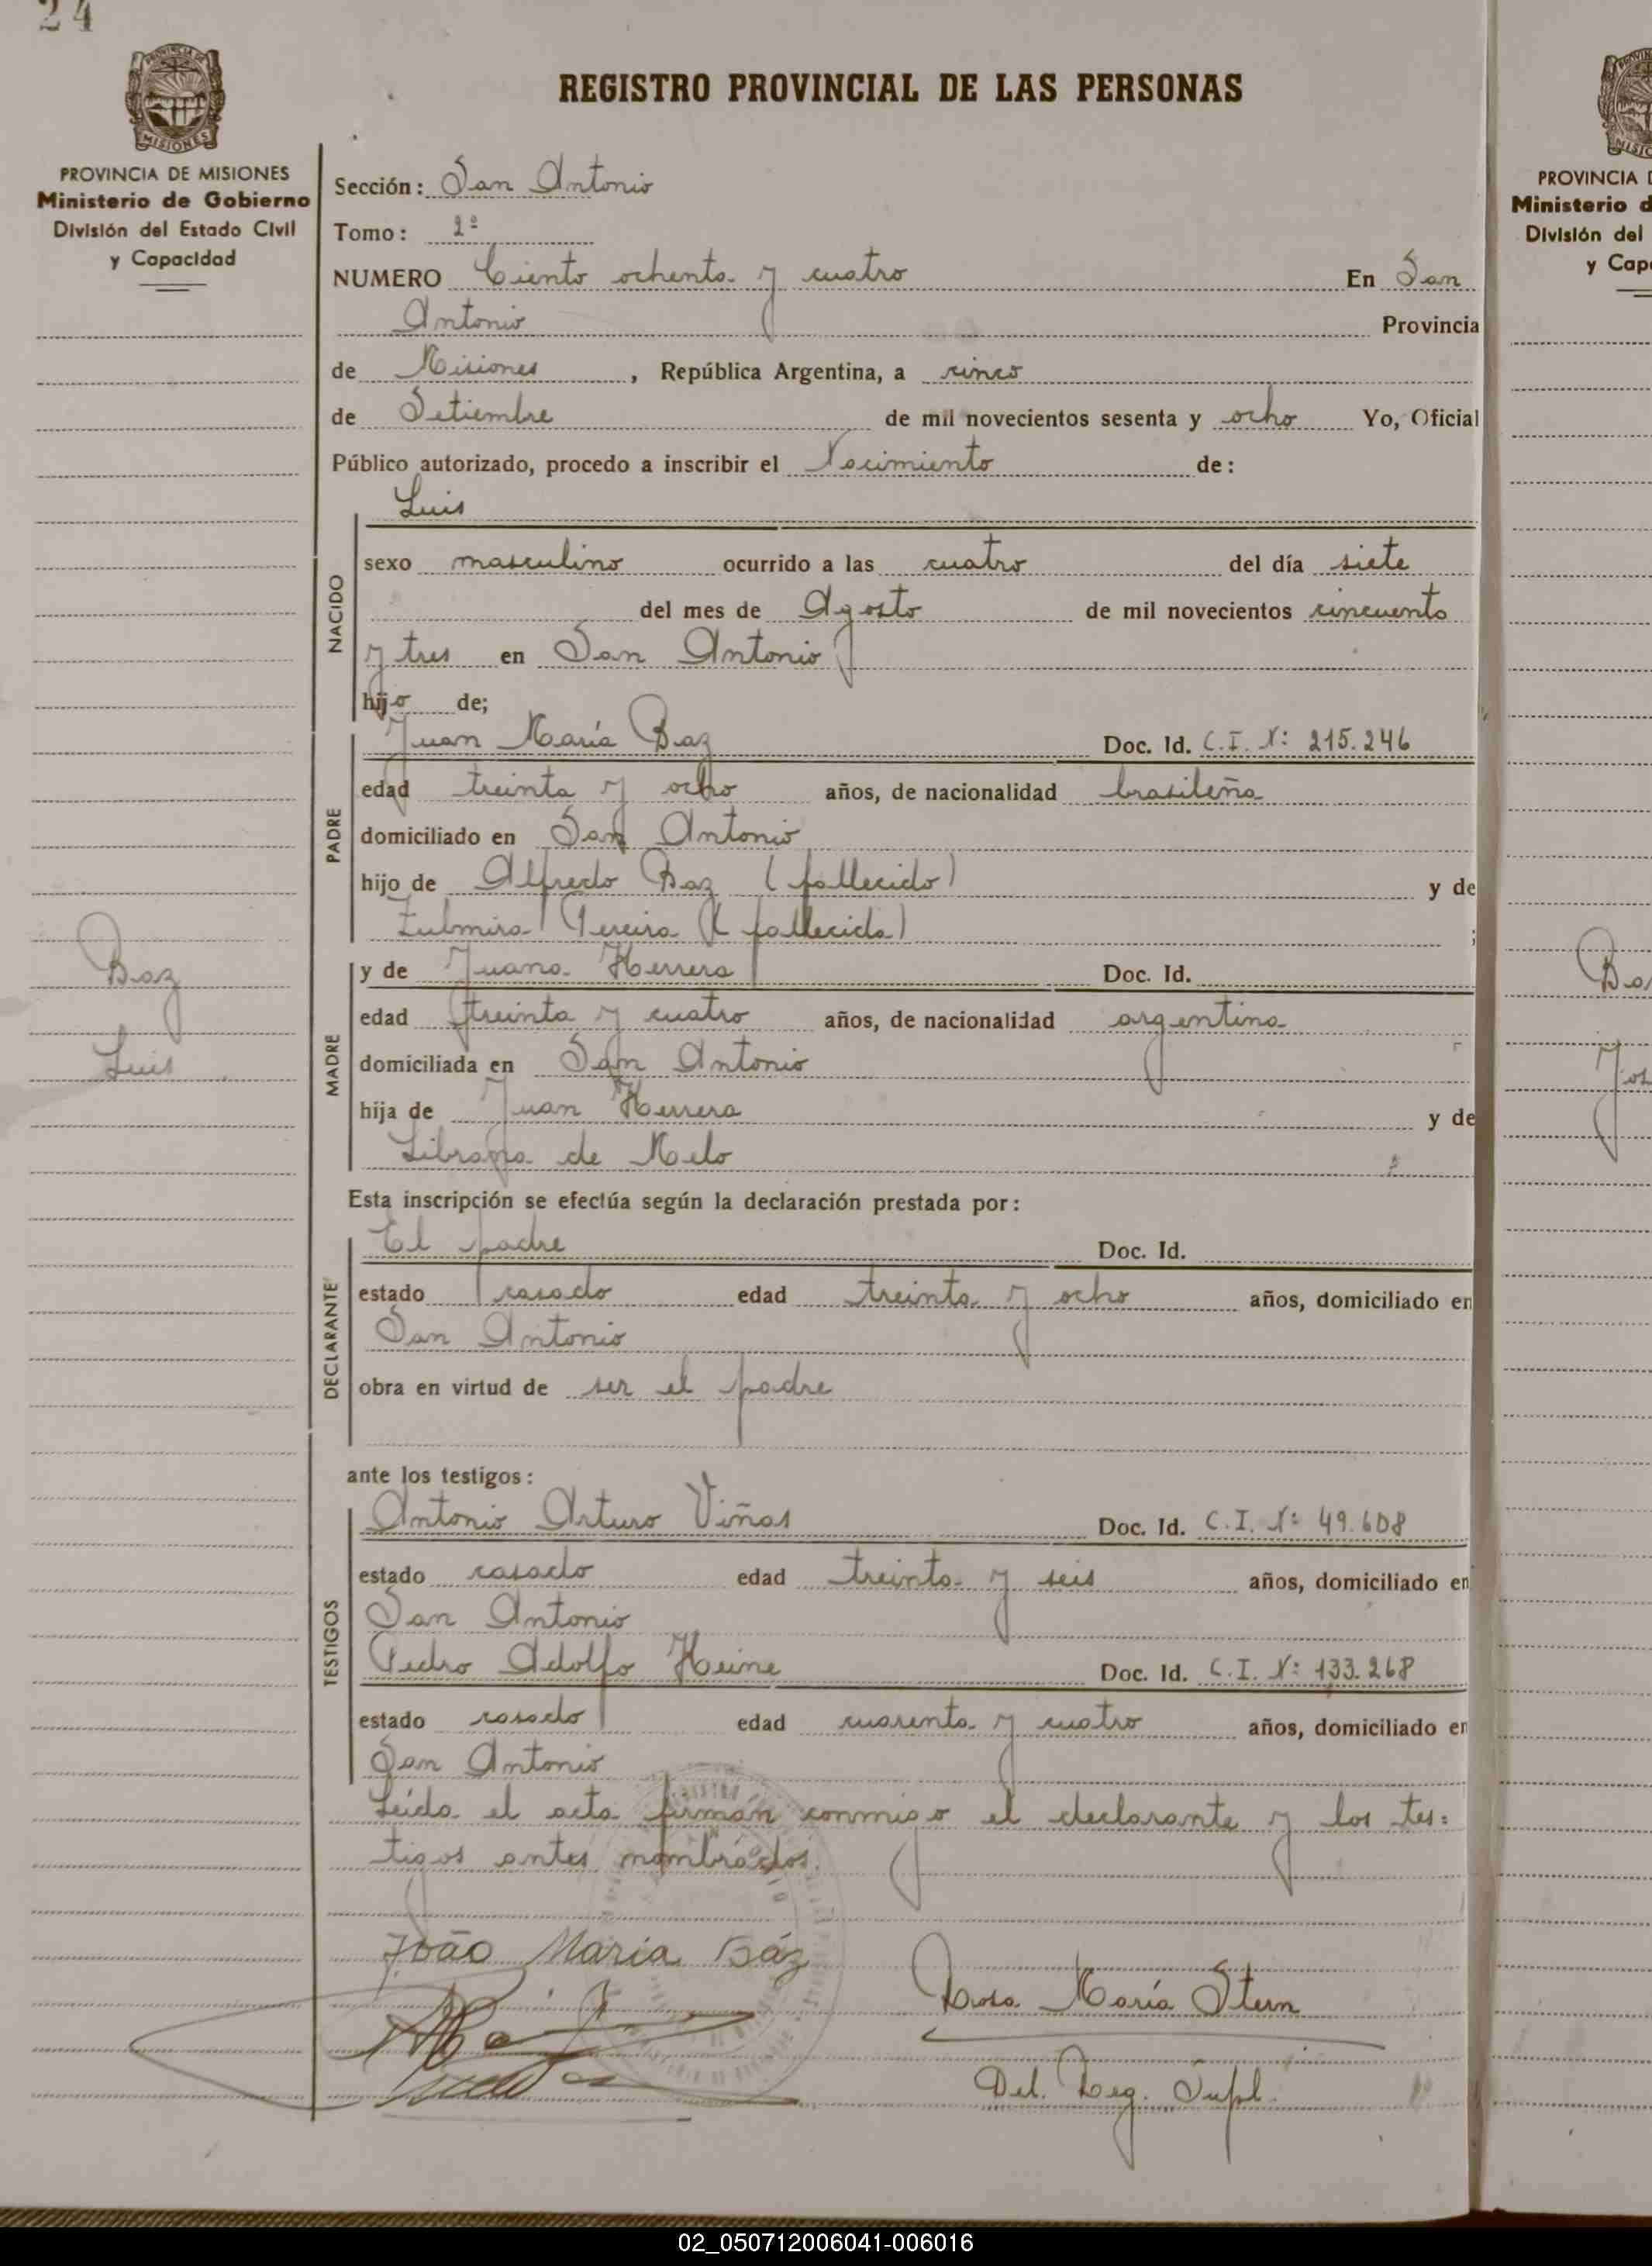 24
REGISTRO PROVINCIAL DE LAS PERSONAS
MISIONES
PROVINCIA DE MISIONES
Ministerio de Gobierno
División del Estado Civil
y Capacidad
Sección: San Antonio
Tomo: 1º
NUMERO Ciento ochenta y cuatro En San
Antonio Provincia
de Misiones, República Argentina, a cinco
de Setiembre de mil novecientos sesenta y ocho Yo, Oficial
Público autorizado, procedo a inscribir el Nacimiento de:
Luis
NACIDO
sexo masculino ocurrido a las cuatro del día siete
del mes de Agosto de mil novecientos cincuenta
y tres en San Antonio
hijo de;
PADRE
Juan María Baz Doc. Id. C.I. Nº 215.246
edad treinta y ocho años, de nacionalidad brasileña
domiciliado en San Antonio
hijo de Alfredo Baz (fallecido) y de
Zulmira Pereira (fallecida) ;
MADRE
y de Juana Herrera Doc. Id.
edad treinta y cuatro años, de nacionalidad argentina
domiciliada en San Antonio
hija de Juan Herrera y de
Librana de Melo
Baz
Luis
Esta inscripción se efectúa según la declaración prestada por:
DECLARANTE
El padre Doc. Id.
estado casado edad treinta y ocho años, domiciliado en
San Antonio
obra en virtud de ser el padre
ante los testigos:
TESTIGOS
Antonio Arturo Viñas Doc. Id. C.I. Nº 49.608
estado casado edad treinta y seis años, domiciliado en
San Antonio
Pedro Adolfo Heine Doc. Id. C.I. Nº 133.268
estado casado edad cuarenta y cuatro años, domiciliado en
San Antonio
Leída el acta firman conmigo el declarante y los tes-
tigos antes nombrados.
João Maria Báz
Rosa María Stern
Del. Reg. Supl.
PROVINCIA D
Ministerio d
División del
y Cap
02_050712006041-006016